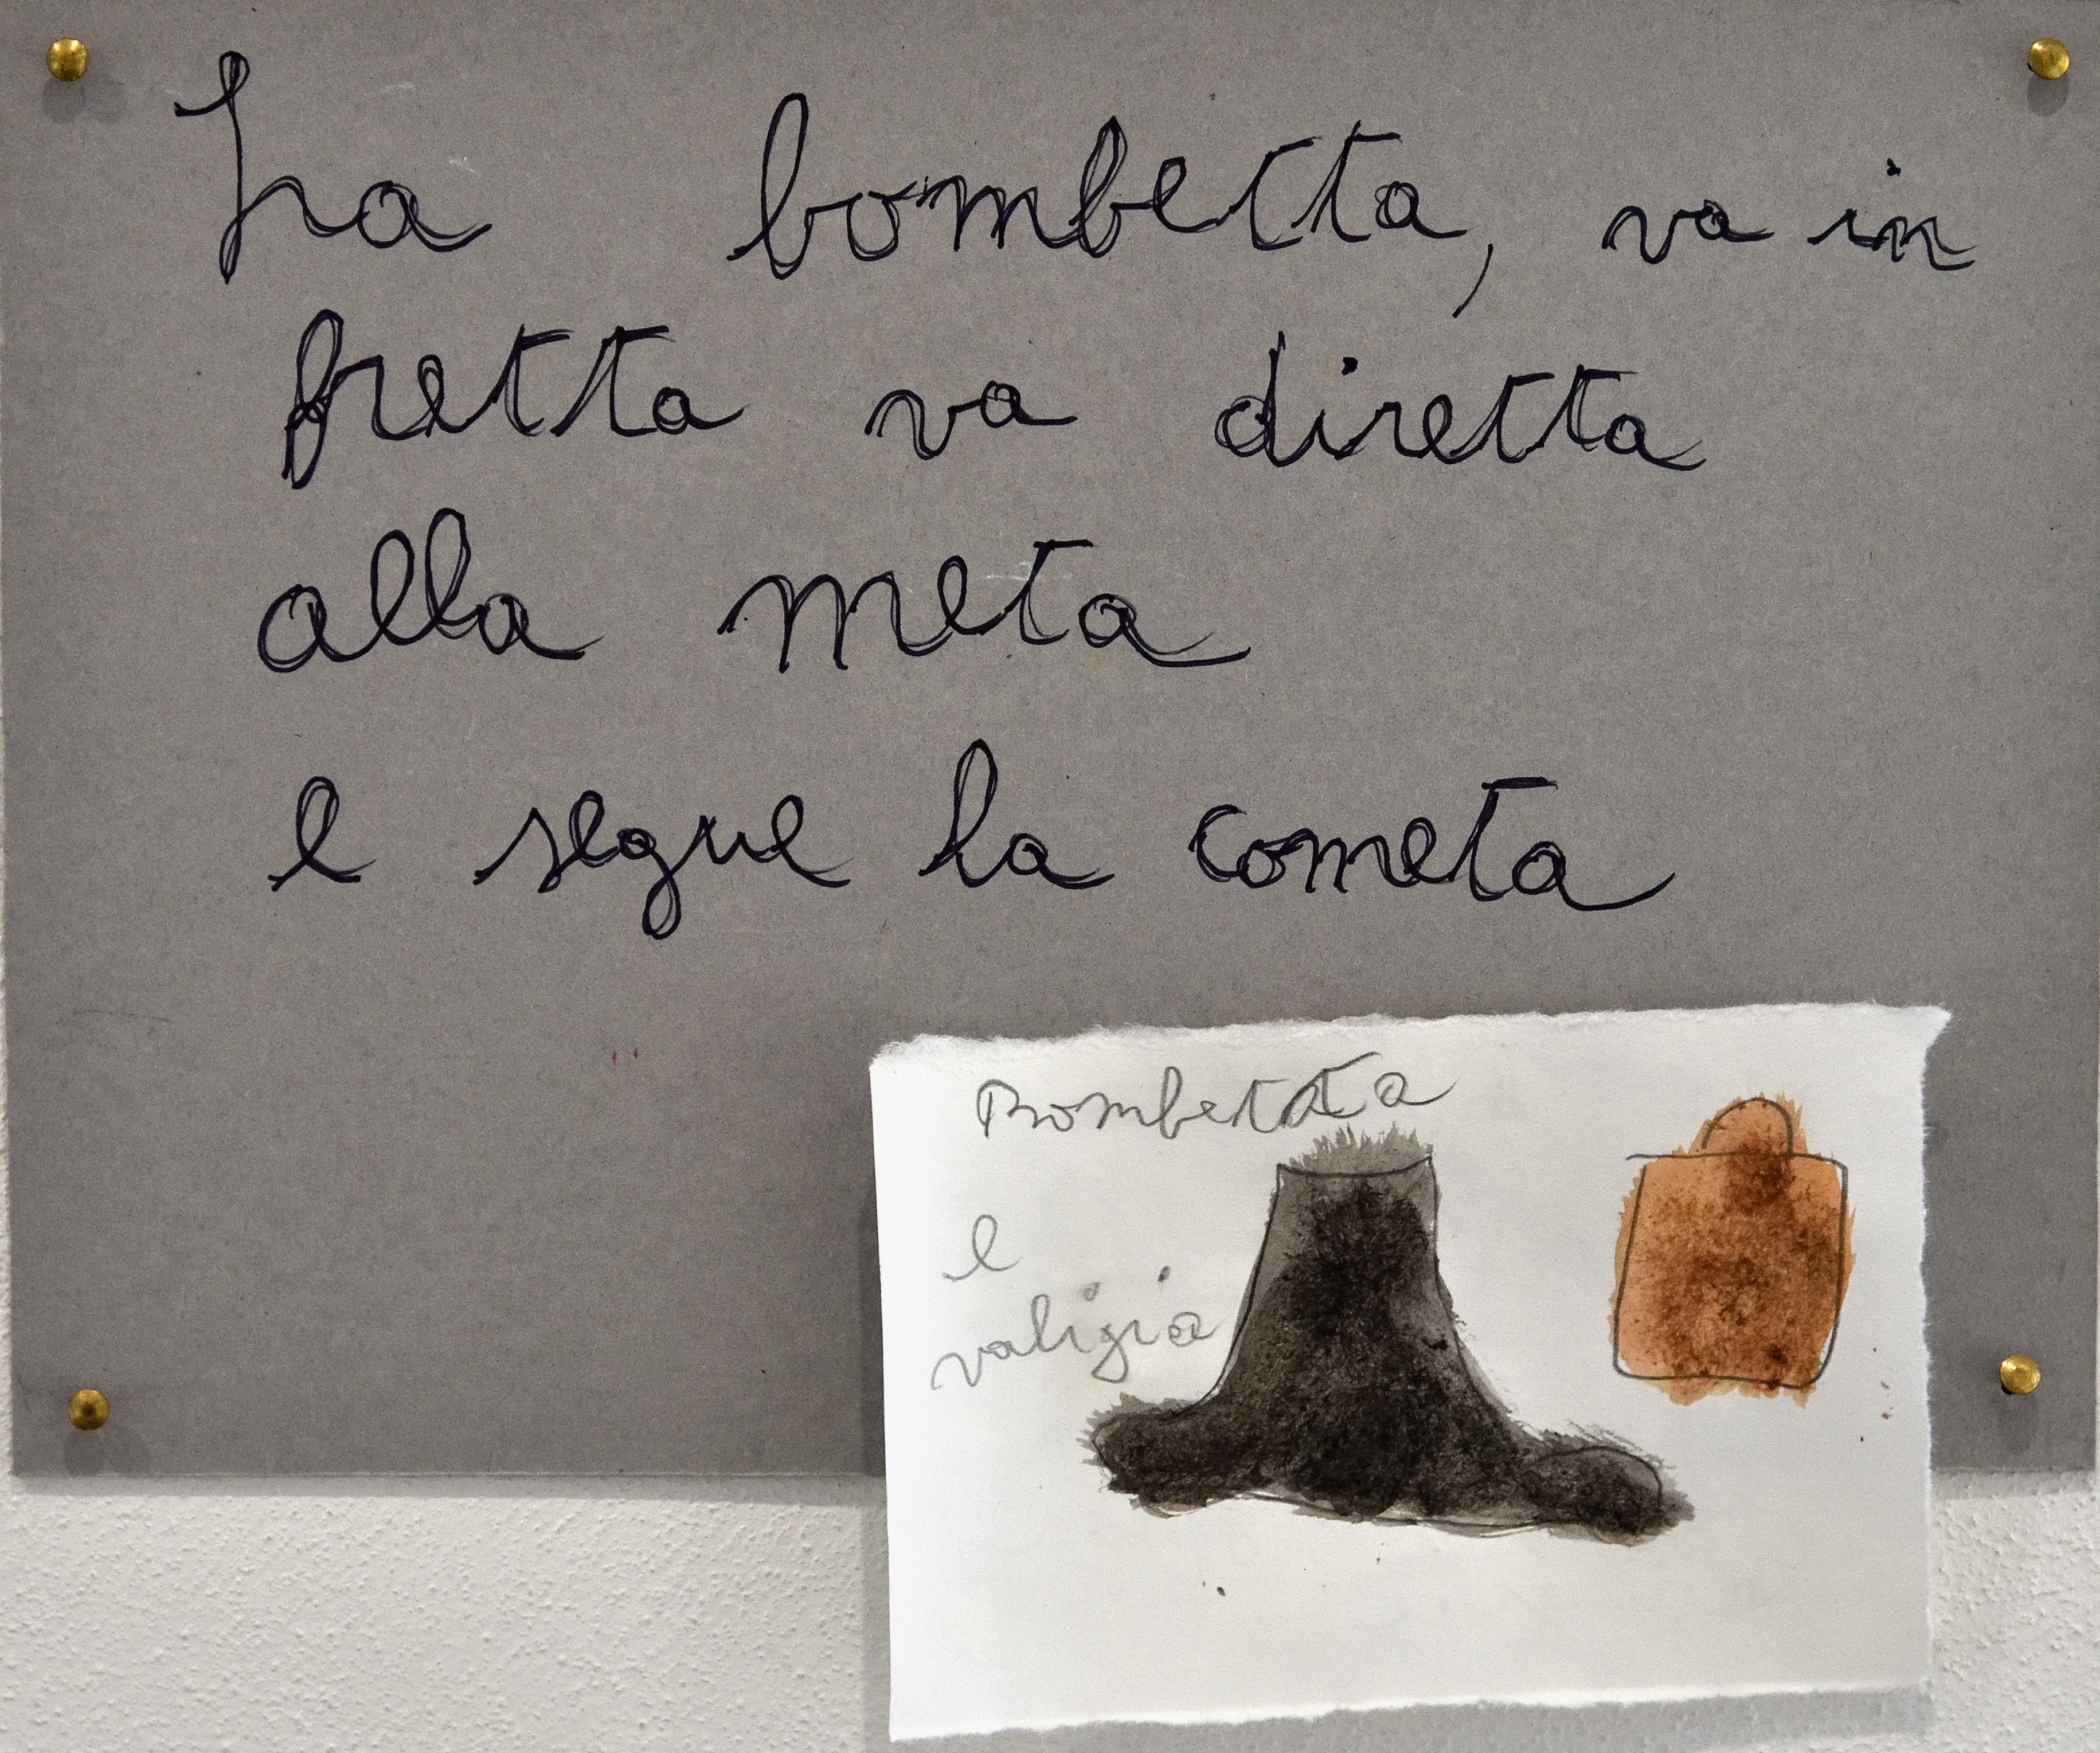 ha bombetta, va in
fretta va diretta
alla meta
e segue la cometa
Bombetta
e
valigia